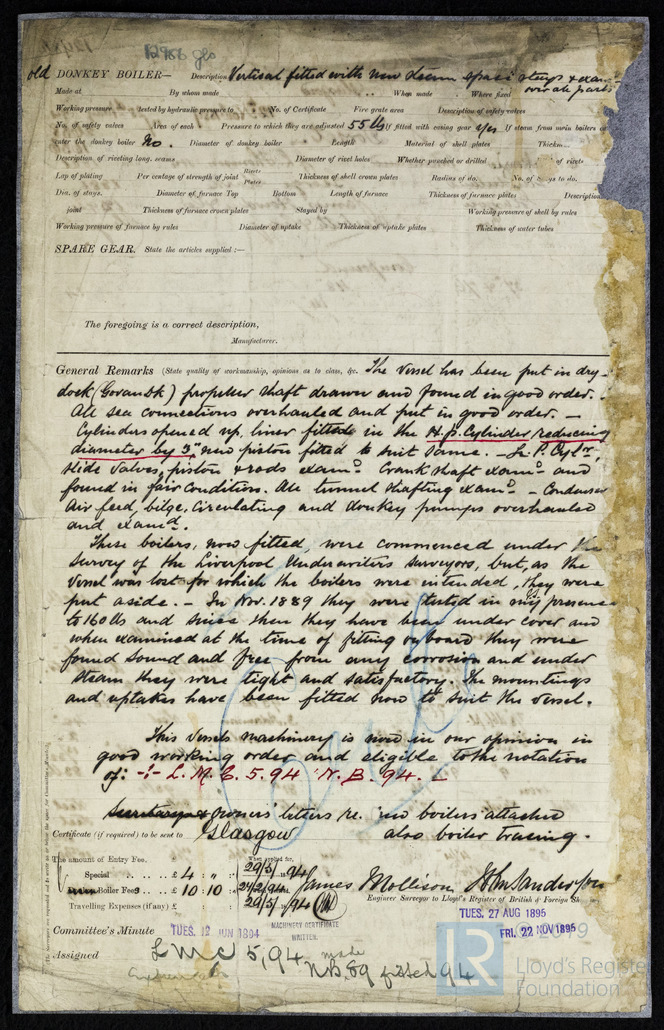 12986 gls
old DONKEY BOILER— Description Vertical fitted with new steam space stays & exam
over all parts
Made at By whom made When made Where fixed
Working pressure tested by hydraulic pressure to No. of Certificate Fire grate area Description of safety valves
No. of safety valves Area of each Pressure to which they are adjusted 55 lbs If fitted with easing gear yes If steam from main boilers can
enter the donkey boiler No. Diameter of donkey boiler Length Material of shell plates Thickn
Description of riveting long. seams Diameter of rivet holes Whether punched or drilled of rivets
Lap of plating Per centage of strength of joint Rivets Plates Thickness of shell crown plates Radius of do. No. of Stays to do.
Dia. of stays. Diameter of furnace Top Bottom Length of furnace Thickness of furnace plates Description
joint Thickness of furnace crown plates Stayed by Working pressure of shell by rules
Working pressure of furnace by rules Diameter of uptake Thickness of uptake plates Thickness of water tubes
SPARE GEAR. State the articles supplied :—
The foregoing is a correct description,
Manufacturer.
General Remarks (State quality of workmanship, opinions as to class, &c. The vessel has been put in dry-
dock (Govan Dk) propeller shaft drawn and found in good order.
All sea connections overhauled and put in good order. —
Cylinders opened up, liner fitted in the H.p. Cylinder reducing
diameter by 3" new piston fitted to suit same. — L. P. Cylr,
slide valves, piston & rods examd. Crank shaft examd and
found in fair condition. All tunnel shafting examd. — Condenser
Air feed, bilge, circulating and donkey pumps overhauled
and examd.
These boilers, now fitted, were commenced under the
survey of the Liverpool Underwriters surveyors, but, as the
vessel was lost for which the boilers were intended, they were
put aside. — In Nov. 1889 they were tested in my presence
to 160 lbs and since then they have been under cover and
when examined at the time of fitting onboard they were
found sound and free from any corrosion and under
steam they were tight and satisfactory. The mountings
and uptakes have been fitted now to suit the vessel.
This vessels machinery is now in our opinion in
good working order and eligible to the notation
of: L. M. C. 5.94 N. B. 94.
Secretary & owners' letters re. new boilers attached
Certificate (if required) to be sent to Glasgow also boiler tracing.
The amount of Entry Fee. When applied for,
Special .. £ 4 : " : 29/5/94
Boiler Fees .. £ 10 : 10 : 24/2/94 James Mollison John Sanderson
Travelling Expenses (if any) £ 29/5/94 Engineer Surveyor to Lloyd's Register of British & Foreign Sh
TUES. 27 AUG 1895
Committee's Minute TUES. 12 JUN 1894 MACHINERY CERTIFICATE WRITTEN. FRI. 22 NOV 1895
Assigned LMC 5,94
made
NB 89 fitted 94
LR
Lloyd's Register
Foundation